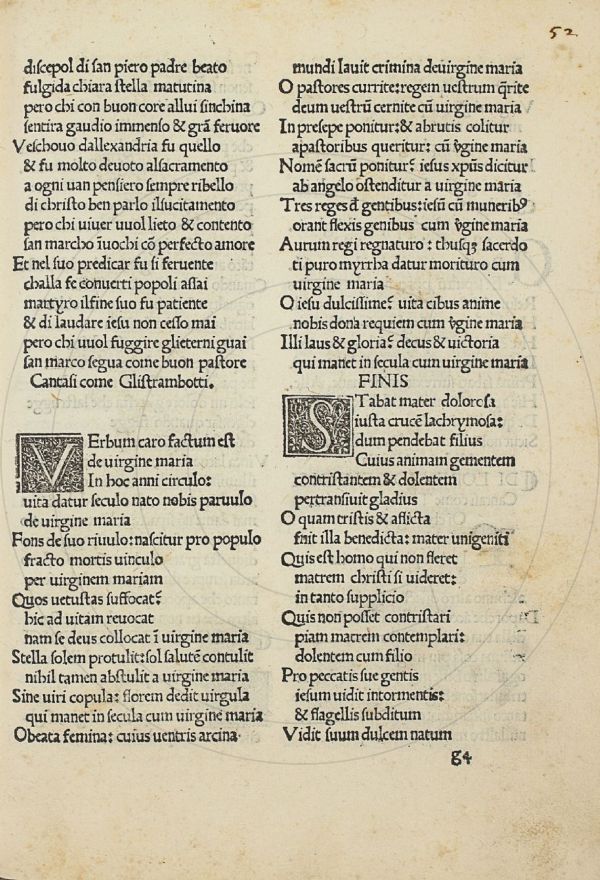 52
discepol di san piero padre beato
fulgida chiara stella matutina
pero chi con buon core allui sinchina
sentira gaudio immenso & grã feruore
Veschouo dallexandria fu quello
& fu molto deuoto alsacramento
a ogni uan pensiero sempre ribello
di christo ben parlo ilsucitamento
pero chi uiuer uuol lieto & contento
san marcho iuochi cõ perfecto amore
Et nel suo predicar fu si feruente
challa fe conuerti popoli assai
martyro ilfine suo fu patiente
& di laudare iesu non cesso mai
pero chi uuol fuggire glieterni guai
san marco segua come buon pastore
Cantasi come Glistrambotti.
VErbum caro factum est
de uirgine maria
In hoc anni circulo:
uita datur seculo nato nobis paruulo
de uirgine maria
Fons de suo riuulo: nascitur pro populo
fracto mortis uinculo
per uirginem mariam
Quos uetustas suffocat:
hic ad uitam reuocat
nam se deus collocat ĩ uirgine maria
Stella solem protulit: sol salutẽ contulit
nihil tamen abstulit a uirgine maria
Sine uiri copula: florem dedit uirgula
qui manet in secula cum uirgine maria
Obeata femina: cuius uentris arcina
mundi lauit crimina deuirgine maria
O pastores currite: regem uestrum q̃rite
deum uestrũ cernite cũ uirgine maria
In presepe ponitur: & abrutis colitur
apastoribus queritur: cũ ṽgine maria
Nomẽ sacrũ ponitur: iesus xp̃us dicitur
ab angelo ostenditur a uirgine maria
Tres reges đ gentibus: iesũ cũ munerib9
orant flexis genibus cum ṽgine maria
Aurum regi regnaturo: thusq; sacerdo
ti puro myrrha datur morituro cum
uirgine maria
O iesu dulcissime: uita cibus anime
nobis dona requiem cum ṽgine maria
Illi laus & gloria: decus & uictoria
qui manet in secula cum uirgine maria
FINIS
STabat mater dolorosa
iusta crucẽ lachrymosa:
dum pendebat filius
Cuius animam gementem
contristantem & dolentem
pertransiuit gladius
O quam tristis & aflicta
fuit illa benedicta: mater unigeniti
Quis est homo qui non fleret
matrem christi si uideret:
in tanto supplicio
Quis non posset contristari
piam matrem contemplari:
dolentem cum filio
Pro peccatis sue gentis
iesum uidit intormentis:
& flagellis subditum
Vidit suum dulcem natum
g4